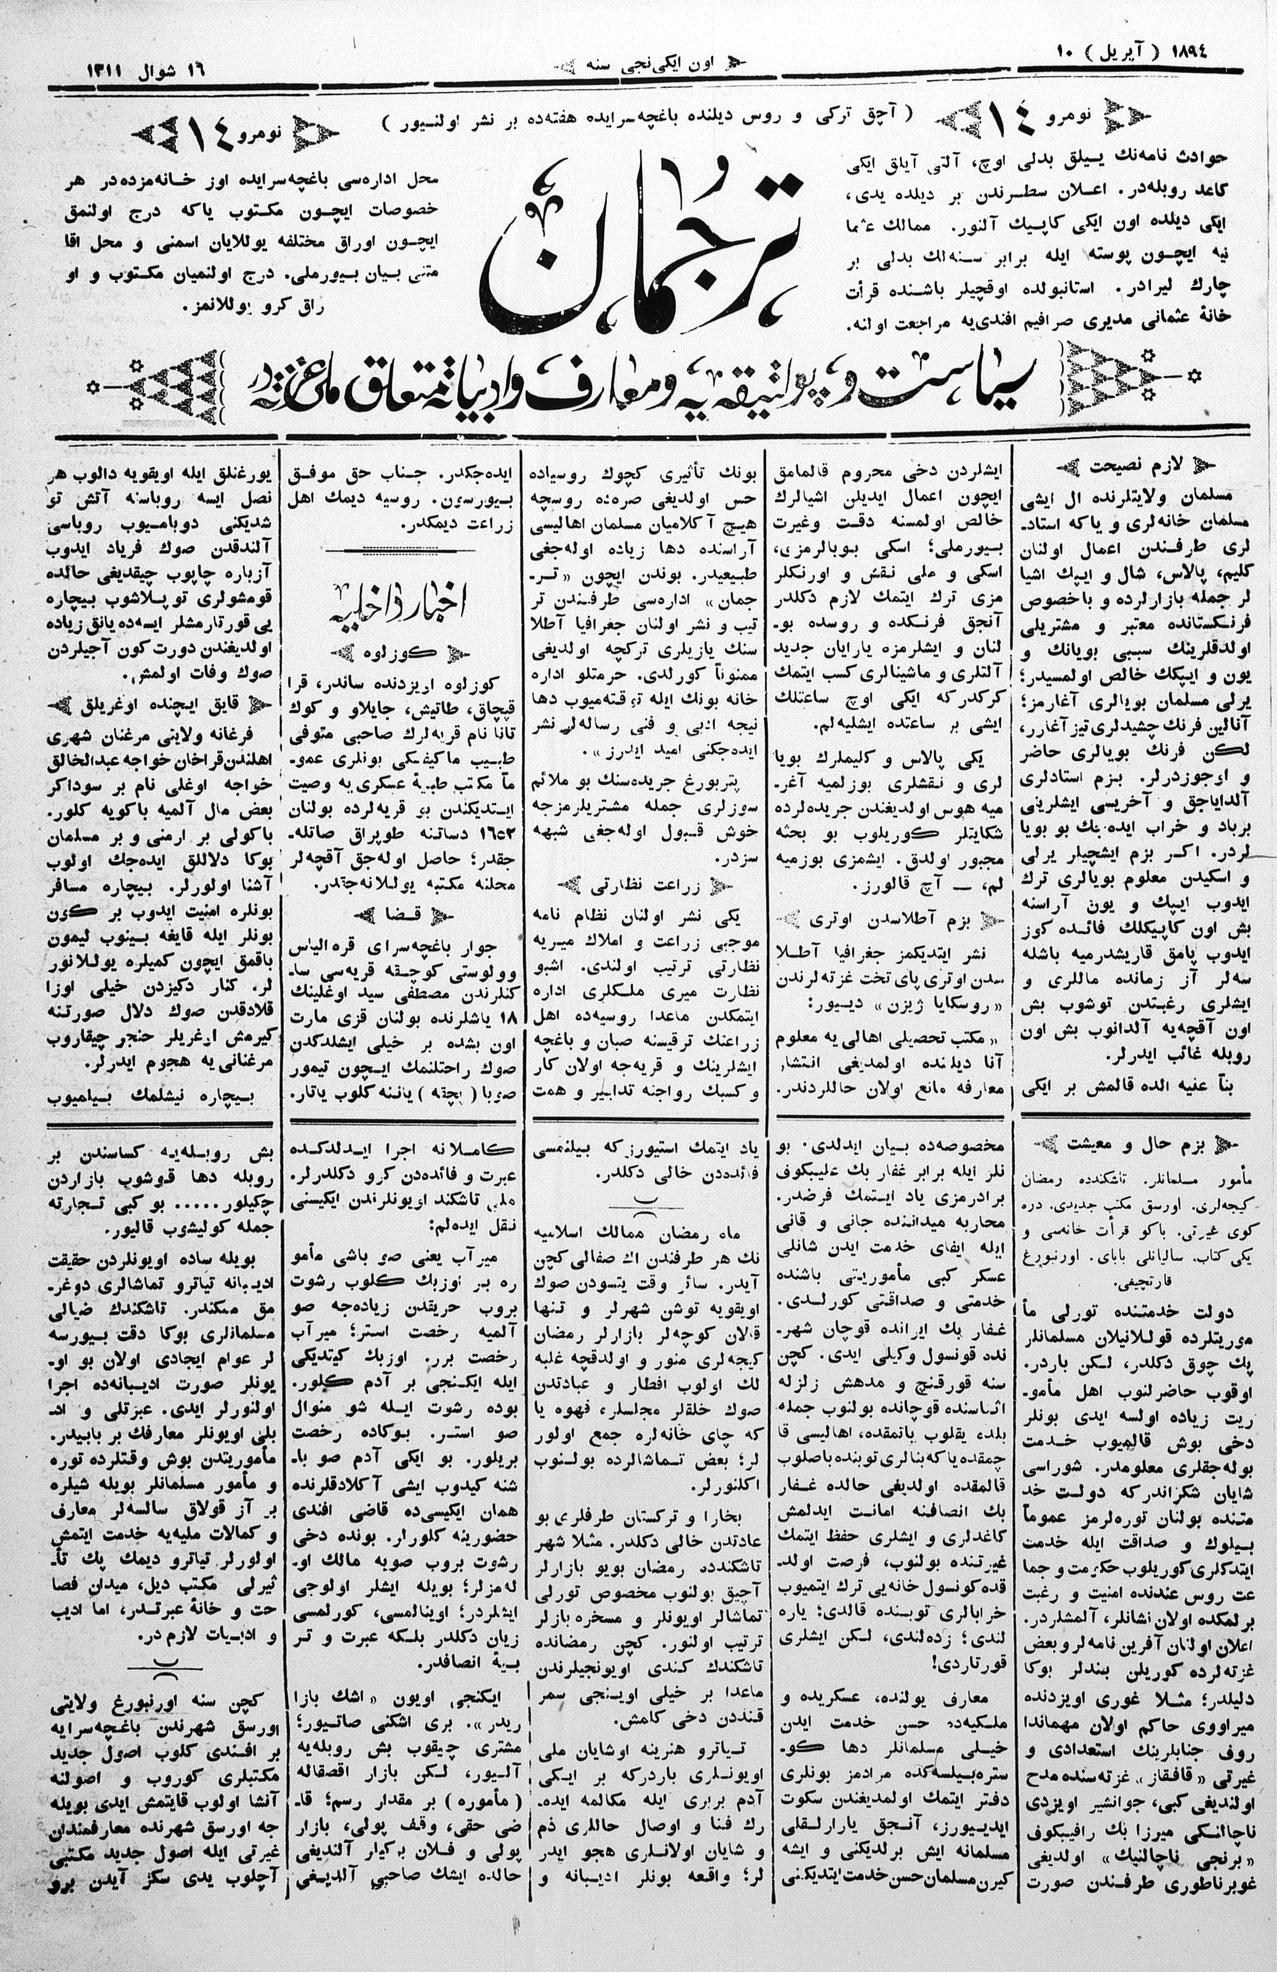 ١٨٩٤ ( آپریل ) ١٠
اون ایکی‌نجی سنه
١٦ شوال ١٣١١
نومرو ١٤
( آچق ترکی و روس دیلنده باغچه‌سرایده هفته‌ده بر نشر اولنیور )
نومرو ١٤
حوادث نامه‌نك ییلق بدلی اوچ، آلتی آیلق ایکی
کاغد روبله‌در. اعلان سطرندن بر دیلده یدی،
ایکی دیلده اون ایکی کاپیك آلنور. ممالك عثما
نیه ایچون پوسته ایله برابر سنه‌لك بدلی بر
چارك لیرادر. استانبولده اوقچیلر باشنده قرأت
خانهٔ عثمانی مدیری صرافیم افندی‌یه مراجعت اولنه.
ترجمان
محل اداره‌سی باغچه‌سرایده اوز خانه‌مزده‌در هر
خصوصات ایچون مکتوب یاکه درج اولنمق
ایچون اوراق مختلفه یوللایان اسمنی و محل اقا
متنی بیان بیورملی. درج اولنمیان مکتوب و او
راق کرو یوللانمز.
سیاست و پولتیقه‌یه و معارف و ادبیاته متعلق ملی غزته‌در
لازم نصیحت
مسلمان ولایتلرنده ال ایشی
مسلمان خانه‌لری و یاکه استاد-
لری طرفندن اعمال اولنان
کلیم، پالاس، شال و ایپك اشیا
لر جمله بازارلرده و باخصوص
فرنکستانده معتبر و مشتریلی
اولدقلرینك سببی بویانك و
یون و ایپکك خالص اولمسیدر؛
یرلی مسلمان بویالری آغارمز؛
آنالین فرنك چشیدلری تیز آغارر،
لکن فرنك بویالری حاضر
و اوجوزدرلر. بزم استادلری
آلدایاجق و آخریسی ایشلرینی
برباد و خراب ایده‌جك بو بویا
لردر. اکر بزم ایشچیلر یرلی
و اسکیدن معلوم بویالری ترك
ایدوب ایپك و یون آراسنه
بش اون کاپیکلك فائده کوز
ایدوب پامق قاریشدرمیه باشله
سه‌لر آز زمانده ماللری و
ایشلری رغبتدن توشوب بش
اون آقچه‌یه آلدانوب بش اون
روبله غائب ایدرلر.
بناً علیه الده قالمش بر ایکی
ایشلردن دخی محروم قالمامق
ایچون اعمال ایدیلن اشیالرك
خالص اولمسنه دقت وغیرت
بیورملی؛ اسکی بویالرمزی،
اسکی و ملی نقش و اورنکلر
مزی ترك ایتمك لازم دکلدر
آنجق فرنکده و روسده بو-
لنان و ایشلرمزه یارایان جدید
آلتلری و ماشینالری کسب ایتمك
کرکدرکه ایکی اوچ ساعتلك
ایشی بر ساعتده ایشلیه‌لم.
یکی پالاس و کلیملرك بویا
لری و نقشلری بوزلمیه آغر-
میه هوس اولدیغندن جریده‌لرده
شکایتلر کوریلوب بو بحثه
مجبور اولدق. ایشمزی بوزمیه
لم، — آچ قالورز.
بزم آطلاسدن اوتری
نشر ایتدیکمز جغرافیا آطلا
سدن اوتری پای تخت غزته‌لرندن
«روسکایا ژیزن» دییور:
«مکتب تحصیلی اهالی‌یه معلوم
آنا دیلنده اولمدیغی انتشار
معارفه مانع اولان حاللردندر.
بونك تأثیری کچوك روسیاده
حس اولدیغی صره‌ده روسچه
هیچ آکلامیان مسلمان اهالیسی
آراسنده دها زیاده اوله‌جغی
طبیعیدر. بوندن ایچون «تر-
جمان» اداره‌سی طرفندن تر
تیب و نشر اولنان جغرافیا آطلا
سنك یازیلری ترکچه اولدیغی
ممنوناً کورلدی. حرمتلو اداره
خانه بونك ایله توقته‌میوب دها
نیجه ادبی و فنی رساله‌لر نشر
ایده‌جکنی امید ایدرز».
پتربورغ جریده‌سنك بو ملائم
سوزلری جمله مشتریلرمزجه
خوش قبول اوله‌جغی شبهه
سزدر.
زراعت نظارتی
یکی نشر اولنان نظام نامه
موجبی زراعت و املاك میریه
نظارتی ترتیب اولندی. اشبو
نظارت میری ملکلری اداره
ایتمکدن ماعدا روسیه‌ده اهل
زراعتك ترقیسنه صبان و باغچه
ایشلرینك و قریه‌جه اولان کار
و کسبك رواجنه تدابیر و همت
ایده‌جکدر. جناب حق موفق
بیورسون. روسیه دیمك اهل
زراعت دیمکدر.
اخبار داخلیه
کوزلوه
کوزلوه اویزدنده ساندر، قرا
قپچاق، طاتیش، جایلاو و کوك
تانا نام قریه‌لرك صاحبی متوفی
طبیب ماکیفسکی بونلری عمو-
ماً مکتب طبیهٔ عسکری‌یه وصیت
ایتدیکندن بو قریه‌لرده بولنان
١٦٥٢ دساتنه طوپراق صاتله-
جقدر؛ حاصل اوله‌جق آقچه‌لر
محلنه مکتبه یوللانه‌جقدر.
قضا
جوار باغچه‌سرای قره‌الیاس
وولوستی کوچقه قریه‌سی سا-
کنلرندن مصطفی سید اوغلینك
١٨ یاشلرنده بولنان قزی مارت
اون بشده بر خیلی ایشلدکدن
صوك راحتلنمك ایچون تیمور
صوبا (پچقه) یاننه کلوب یاتار.
یورغنلق ایله اویقویه دالوب هر
نصل ایسه روباسنه آتش تو
شدیکنی دویامیوب روباسی
آلندقدن صوك فریاد ایدوب
آزباره چاپوب چیقدیغی حالده
قومشولری توپلاشوب بیچاره
یی قورتارمشلر ایسه‌ده یانق زیاده
اولدیغندن دورت کون آجیلردن
صوك وفات اولمش.
قایق ایچنده اوغریلق
فرغانه ولایتی مرغنان شهری
اهلندن قراخان خواجه عبدالخالق
خواجه اوغلی نام بر سوداکر
بعض مال آلمیه باکویه کلور.
باکولی بر ارمنی و بر مسلمان
بوکا دلاللق ایده‌جك اولوب
آشنا اولورلر. بیچاره مسافر
بونلره امنیت ایدوب بر کون
بونلر ایله قایغه بینوب لیمون
باقمق ایچون کمیلره یوللانور
لر. کنار دکیزدن خیلی اوزا
قلادقدن صوك دلال صورتنه
کیرمش اوغریلر خنجر چیقاروب
مرغنانی‌یه هجوم ایدرلر.
بیچاره نیشلمك بیلمیوب
بزم حال و معیشت
مأمور مسلمانلر. تاشکندده رمضان
کیجه‌لری. اورسق مکتب جدیدی. دره
کوی غیرتی. باکو قرأت خانه‌سی و
یکی کتاب. سالیانلی بابای. اورنبورغ
قارتچیفی.
دولت خدمتنده تورلی مأ
موریتلرده قوللانیلان مسلمانلر
پك چوق دکلدر، لکن باردر.
اوقوب حاضرلنوب اهل مأمو-
ریت زیاده اولسه ایدی بونلر
دخی بوش قالمیوب خدمت
بوله‌جقلری معلومدر. شوراسی
شایان شکراندرکه دولت خد
متنده بولنان توره‌لرمز عموماً
بیلوك و صداقت ایله خدمت
ایتدکلری کوریلوب حکومت و جما
عت روس عندنده امنیت و رغبت
برلمکده اولان نشانلر، آلمشلردر.
اعلان اولنان آفرین نامه‌لر و بعض
غزته‌لرده کوریلن بندلر بوکا
دلیلدر؛ مثلا غوری اویزدنده
میراووی حاکم اولان مهماندا
روف جنابلرینك استعدادی و
غیرتی «قافقاز» غزته‌سنده مدح
اولندیغی کبی، جوانشیر اویزدی
ناچالنکی میرزا بك رافیبکوف
«برنجی ناچالنیك» اولدیغی
غوبرناطوری طرفندن صورت
مخصوصه‌ده بیان ایدلدی. بو
نلر ایله برابر غفار بك علیبکوف
برادرمزی یاد ایتمك فرضدر.
محاربه میداننده جانی و قانی
ایله ایفای خدمت ایدن شانلی
عسکر کبی مأموریتی باشنده
خدمتی و صداقتی کورلدی.
غفار بك ایرانده قوچان شهر-
نده قونسول وکیلی ایدی. کچن
سنه قورقنچ و مدهش زلزله
اثناسنده قوچانده بولنوب جمله
بلده یقلوب باتمقده، اهالیسی قا
چمقده یاکه بنالری توبنده باصلوب
قالمقده اولدیغی حالده غفار
بك انصافنه امانت ایدلمش
کاغدلری و ایشلری حفظ ایتمك
غیرتنده بولنوب، فرصت اولد-
قده کونسول خانه‌یی ترك ایتمیوب
خرابالری توبنده قالدی؛ یاره
لندی؛ زده‌لندی، لکن ایشلری
قورتاردی!
معارف یولنده، عسکریده و
ملکیه‌ده حسن خدمت ایدن
خیلی مسلمانلر دها کو-
ستره‌بیلسه‌کده مرادمز بونلری
دفتر ایتمك اولمدیغندن سکوت
ایدییورز، آنجق یارارلقلی
مسلمانه ایش برلدیکنی و ایشه
کیرن مسلمان حسن خدمت ایتدیکنی
یاد ایتمك استیورز که بیلنمسی
فائده‌دن خالی دکلدر.
ماه رمضان ممالك اسلامیه
نك هر طرفندن اك صفالی کچن
آیدر. سائر وقت یتسودن صوك
اویقویه توشن شهرلر و تنها
قالان کوچه‌لر بازارلر رمضان
کیجه‌لری منور و اولدقچه غلبه
لك اولوب افطار و عبادتدن
صوك خلقلر مجلسلر، قهوه یا
که چای خانه‌لره جمع اولور
لر؛ بعض تماشالرده بولنوب
اکلنورلر.
بخارا و ترکستان طرفلری بو
عادتدن خالی دکلدر. مثلا شهر
تاشکندده رمضان بویو بازارلر
آچیق بولنوب مخصوص تورلی
تماشالر اویونلر و مسخره بازلر
ترتیب اولنور. کچن رمضانده
تاشکندك کندی اویونجیلرندن
ماعدا بر خیلی اوینجی سمر
قنددن دخی کلمش.
تیاترو هنرینه اوشایان ملی
اویونلری باردرکه بر ایکی
آدم بربری ایله مکالمه ایده-
رك فنا و اوصال حاللری ذم
و شایان اولانلری هجو ایدر
لر؛ واقعه بونلر ادیبانه و
کاملانه اجرا ایدلدکده
عبرت و فائده‌دن کرو دکلدرلر.
ملی تاشکند اویونلرندن ایکیسنی
نقل ایده‌لم:
میرآب یعنی صو باشی مأمو
ره بر اوزبك کلوب رشوت
بروب حریقدن زیاده‌جه صو
آلمیه رخصت استر؛ میرآب
رخصت برر. اوزبك کیتدیکی
ایله ایکنجی بر آدم کلور.
بوده رشوت ایله شو منوال
صو استر. بوکاده رخصت
بریلور. بو ایکی آدم صو با-
شنه کیدوب ایشی آکلادقلرنده
همان ایکیسی‌ده قاضی افندی
حضورینه کلورلر. بونده دخی
رشوت بروب صویه مالك او-
له‌مزلر؛ بویله ایشلر اولوجی
ایشلردر؛ اوینالمسی، کورلمسی
زیان دکلدر بلکه عبرت و تر
بیهٔ انصافدر.
ایکنجی اویون «اشك بازا
ریدر». بری اشکنی صاتیور؛
مشتری چیقوب بش روبله‌یه
آلیور، لکن بازار اقصقاله
(مأموره) بر مقدار رسم؛ قا-
ضی حقی، وقف پولی، بازار
پولی و فلان برکیار آلندیغی
حالده ایشك صاحبی آلدیغی
بش روبله‌یه کساسندن بر
روبله دها قوشوب بازاردن
چکیلور..... بو کبی تجارته
جمله کولیشوب قالیور.
بویله ساده اویونلردن حقیقت
ادیبانه تیاترو تماشالری دوغر-
مق ممکندر. تاشکندك ضیالی
مسلمانلری بوکا دقت بیورسه
لر عوام ایجادی اولان بو او-
یونلر صورت ادیبانه‌ده اجرا
اولنورلر ایدی. عبرتلی و اد-
بلی اویونلر معارفك بر بابیدر.
مأموریتدن بوش وقتلرده توره
و مأمور مسلمانلر بویله شیلره
بر آز قولاق سالسه‌لر معارف
و کمالات ملیه‌یه خدمت ایتمش
اولورلر تیاترو دیمك پك تأ-
ثیرلی مکتب دیل، میدان فصا
حت و خانهٔ عبرتدر، اما ادیب
و ادبیات لازم در.
کچن سنه اورنبورغ ولایتی
اورسق شهرندن باغچه‌سرایه
بر افندی کلوب اصول جدید
مکتبلری کوروب و اصولنه
آشنا اولوب قایتمش ایدی بویله
جه اورسق شهرنده معارفمندان
غیرتی ایله اصول جدید مکتبی
آچلوب یدی سکز آیدن برو